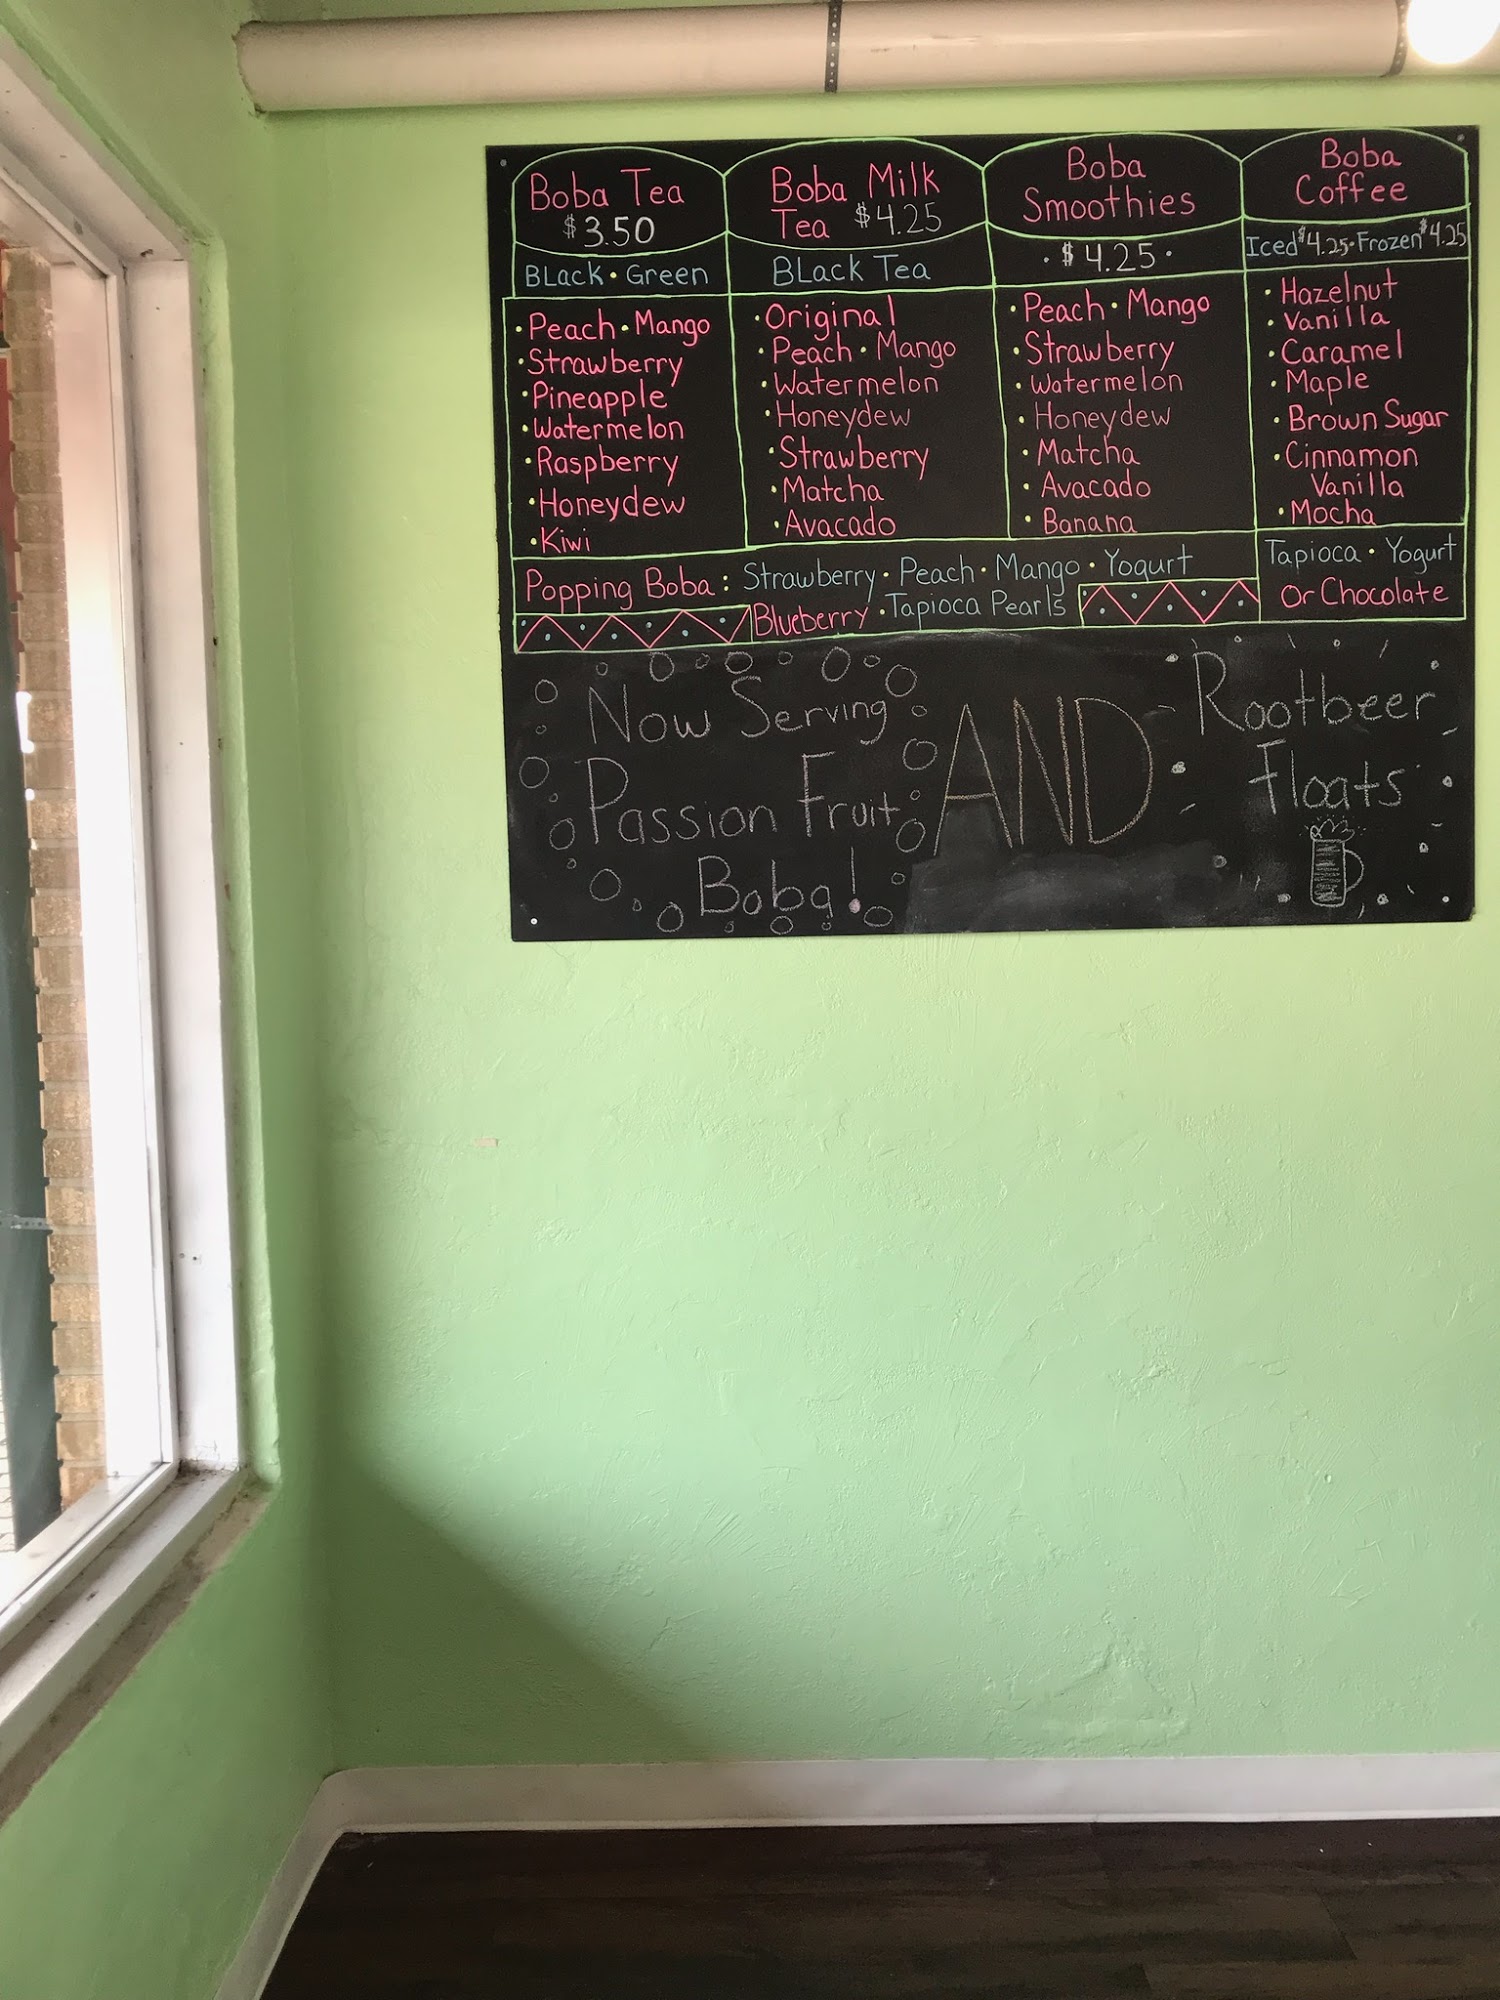 Boba Tea
$3.50
Black • Green
• Peach • Mango
• Strawberry
• Pineapple
• Watermelon
• Raspberry
• Honeydew
• Kiwi
Boba Milk
Tea $4.25
Black Tea
• Original
• Peach • Mango
• Watermelon
• Honeydew
• Strawberry
• Matcha
• Avacado
Boba
Smoothies
• $4.25 •
• Peach • Mango
• Strawberry
• Watermelon
• Honeydew
• Matcha
• Avacado
• Banana
Boba
Coffee
Iced $4.25 • Frozen $4.25
• Hazelnut
• Vanilla
• Caramel
• Maple
• Brown Sugar
• Cinnamon
Vanilla
• Mocha
Tapioca • Yogurt
Or Chocolate
Popping Boba: Strawberry • Peach • Mango • Yogurt
Blueberry • Tapioca Pearls
Now Serving
Passion Fruit
Boba!
AND
Rootbeer
Floats